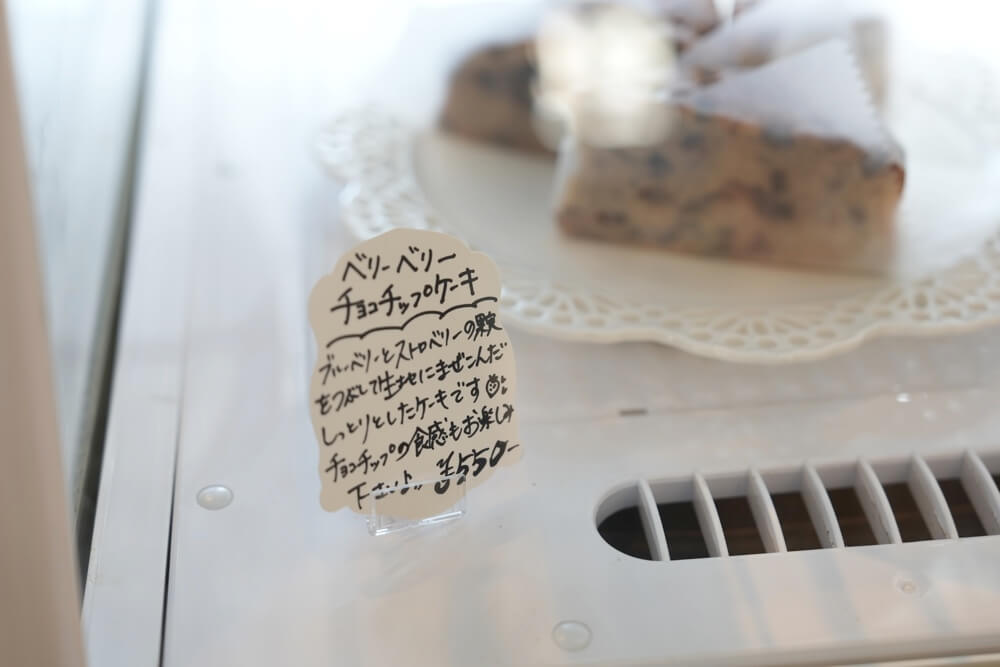 ベリーベリー
チョコチップケーキ
ブルーベリーとストロベリーの果実
をつぶして生地にまぜこんだ
しっとりとしたケーキです
チョコチップの食感もお楽しみ
下さい♪ ¥550-